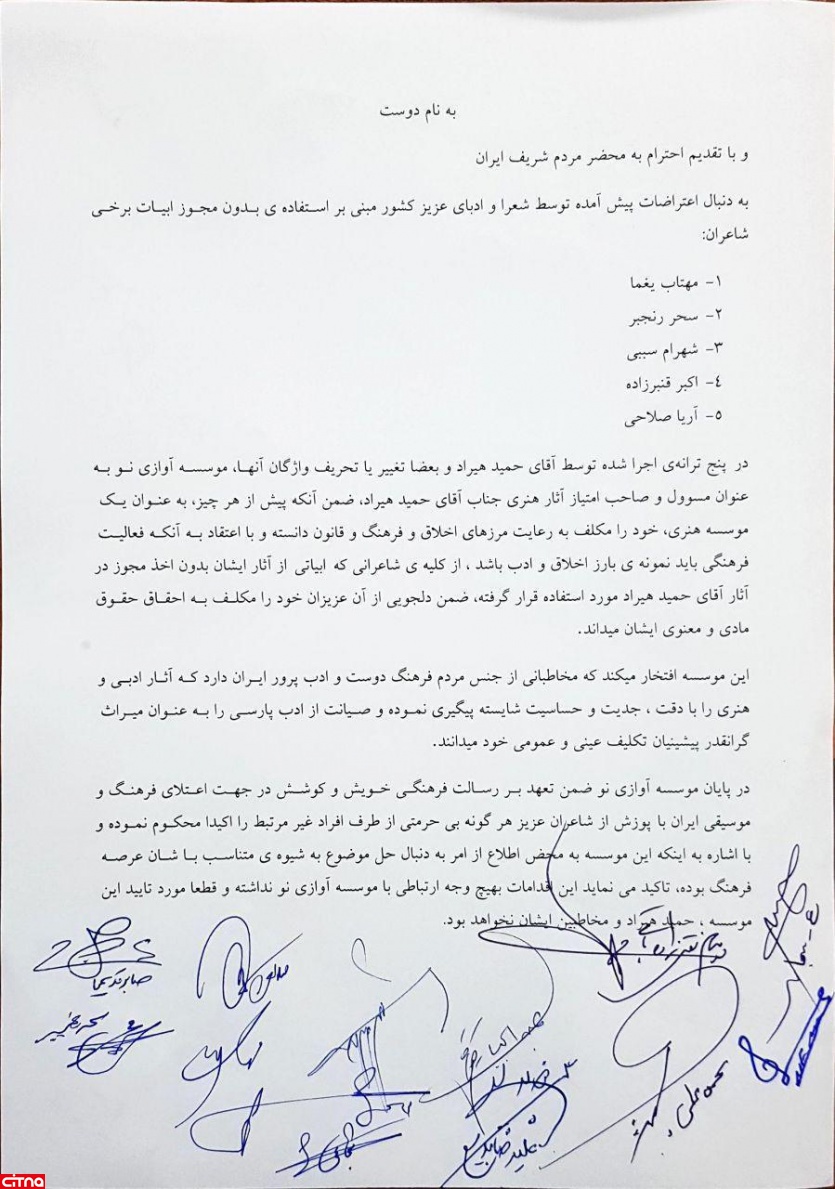 به نام دوست
و با تقدیم احترام به محضر مردم شریف ایران
به دنبال اعتراضات پیش آمده توسط شعرا و ادبای عزیز کشور مبنی بر استفاده ی بدون مجوز ابیات برخی
شاعران:
۱- مهتاب یغما
۲- سحر رنجبر
۳- شهرام سببی
٤- اکبر قنبرزاده
٥- آریا صلاحی
در پنج ترانه‌ی اجرا شده توسط آقای حمید هیراد و بعضا تغییر یا تحریف واژگان آنها، موسسه آوازی نو به
عنوان مسوول و صاحب امتیاز آثار هنری جناب آقای حمید هیراد، ضمن آنکه پیش از هر چیز، به عنوان یک
موسسه هنری، خود را مکلف به رعایت مرزهای اخلاق و فرهنگ و قانون دانسته و با اعتقاد به آنکه فعالیت
فرهنگی باید نمونه ی بارز اخلاق و ادب باشد ، از کلیه ی شاعرانی که ابیاتی از آثار ایشان بدون اخذ مجوز در
آثار آقای حمید هیراد مورد استفاده قرار گرفته، ضمن دلجویی از آن عزیزان خود را مکلف به احقاق حقوق
مادی و معنوی ایشان میداند.
این موسسه افتخار میکند که مخاطبانی از جنس مردم فرهنگ دوست و ادب پرور ایران دارد که آثار ادبی و
هنری را با دقت ، جدیت و حساسیت شایسته پیگیری نموده و صیانت از ادب پارسی را به عنوان میراث
گرانقدر پیشینیان تکلیف عینی و عمومی خود میدانند.
در پایان موسسه آوازی نو ضمن تعهد بر رسالت فرهنگی خویش و کوشش در جهت اعتلای فرهنگ و
موسیقی ایران با پوزش از شاعران عزیز هر گونه بی حرمتی از طرف افراد غیر مرتبط را اکیدا محکوم نموده و
با اشاره به اینکه این موسسه به محض اطلاع از امر به دنبال حل موضوع به شیوه ی متناسب با شان عرصه
فرهنگ بوده، تاکید می نماید این اقدامات بهیچ وجه ارتباطی با موسسه آوازی نو نداشته و قطعا مورد تایید این
موسسه ، حمید هیراد و مخاطبین ایشان نخواهد بود.
صابر قدیمی
CITNA